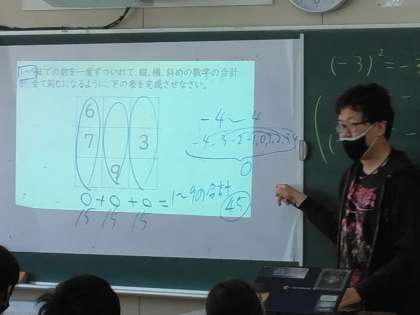 1～9までの数を一度ずついれて、縦、横、斜めの数字の合計
全て同じになるように、下の表を完成させなさい。
6
7 3
9
0+0+0=1～9の合計
15 15 15
45
-4～4
-4,-3,-2,-1,0,1,2,3,4
0
(-3)² =